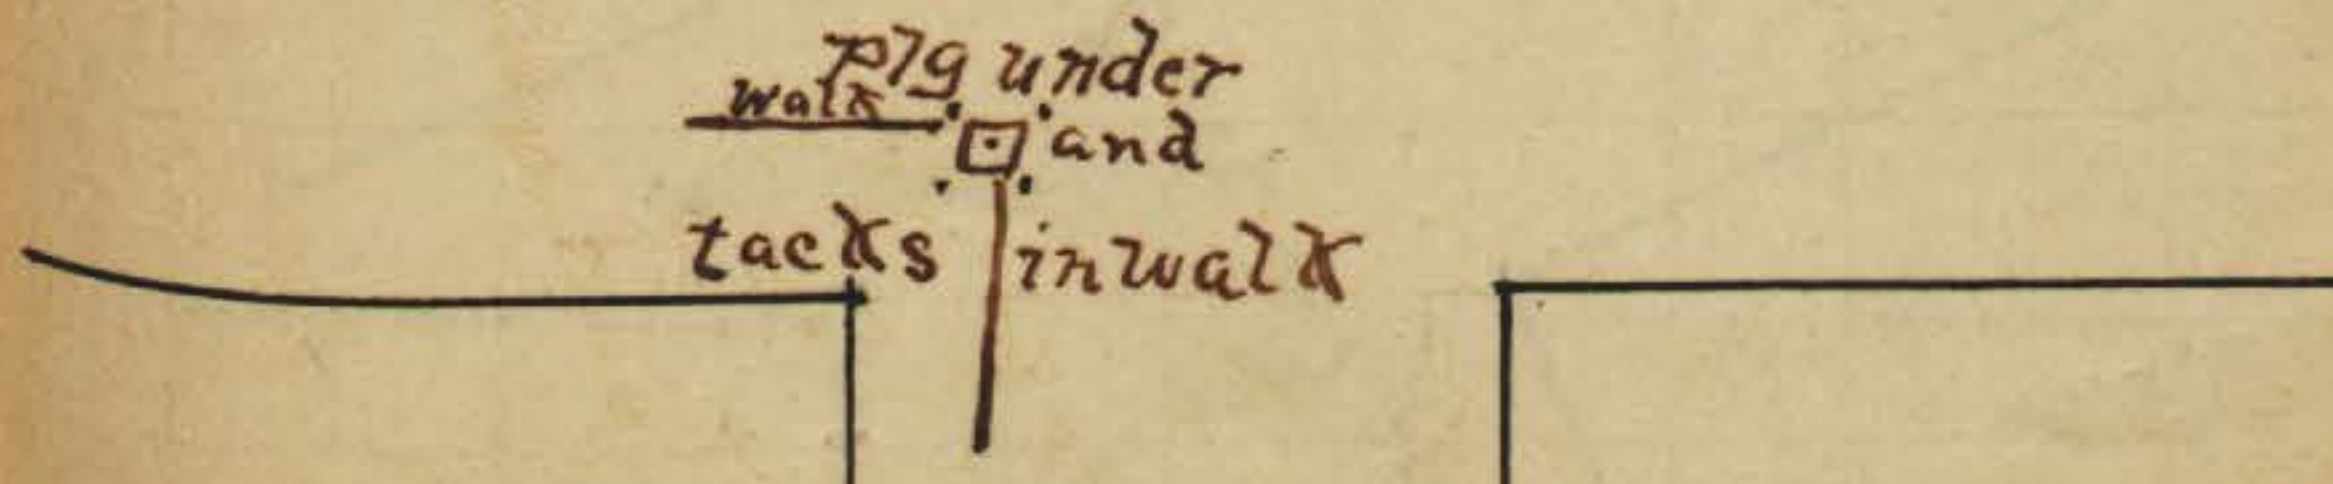 pig under
walk
and
tacks in walk